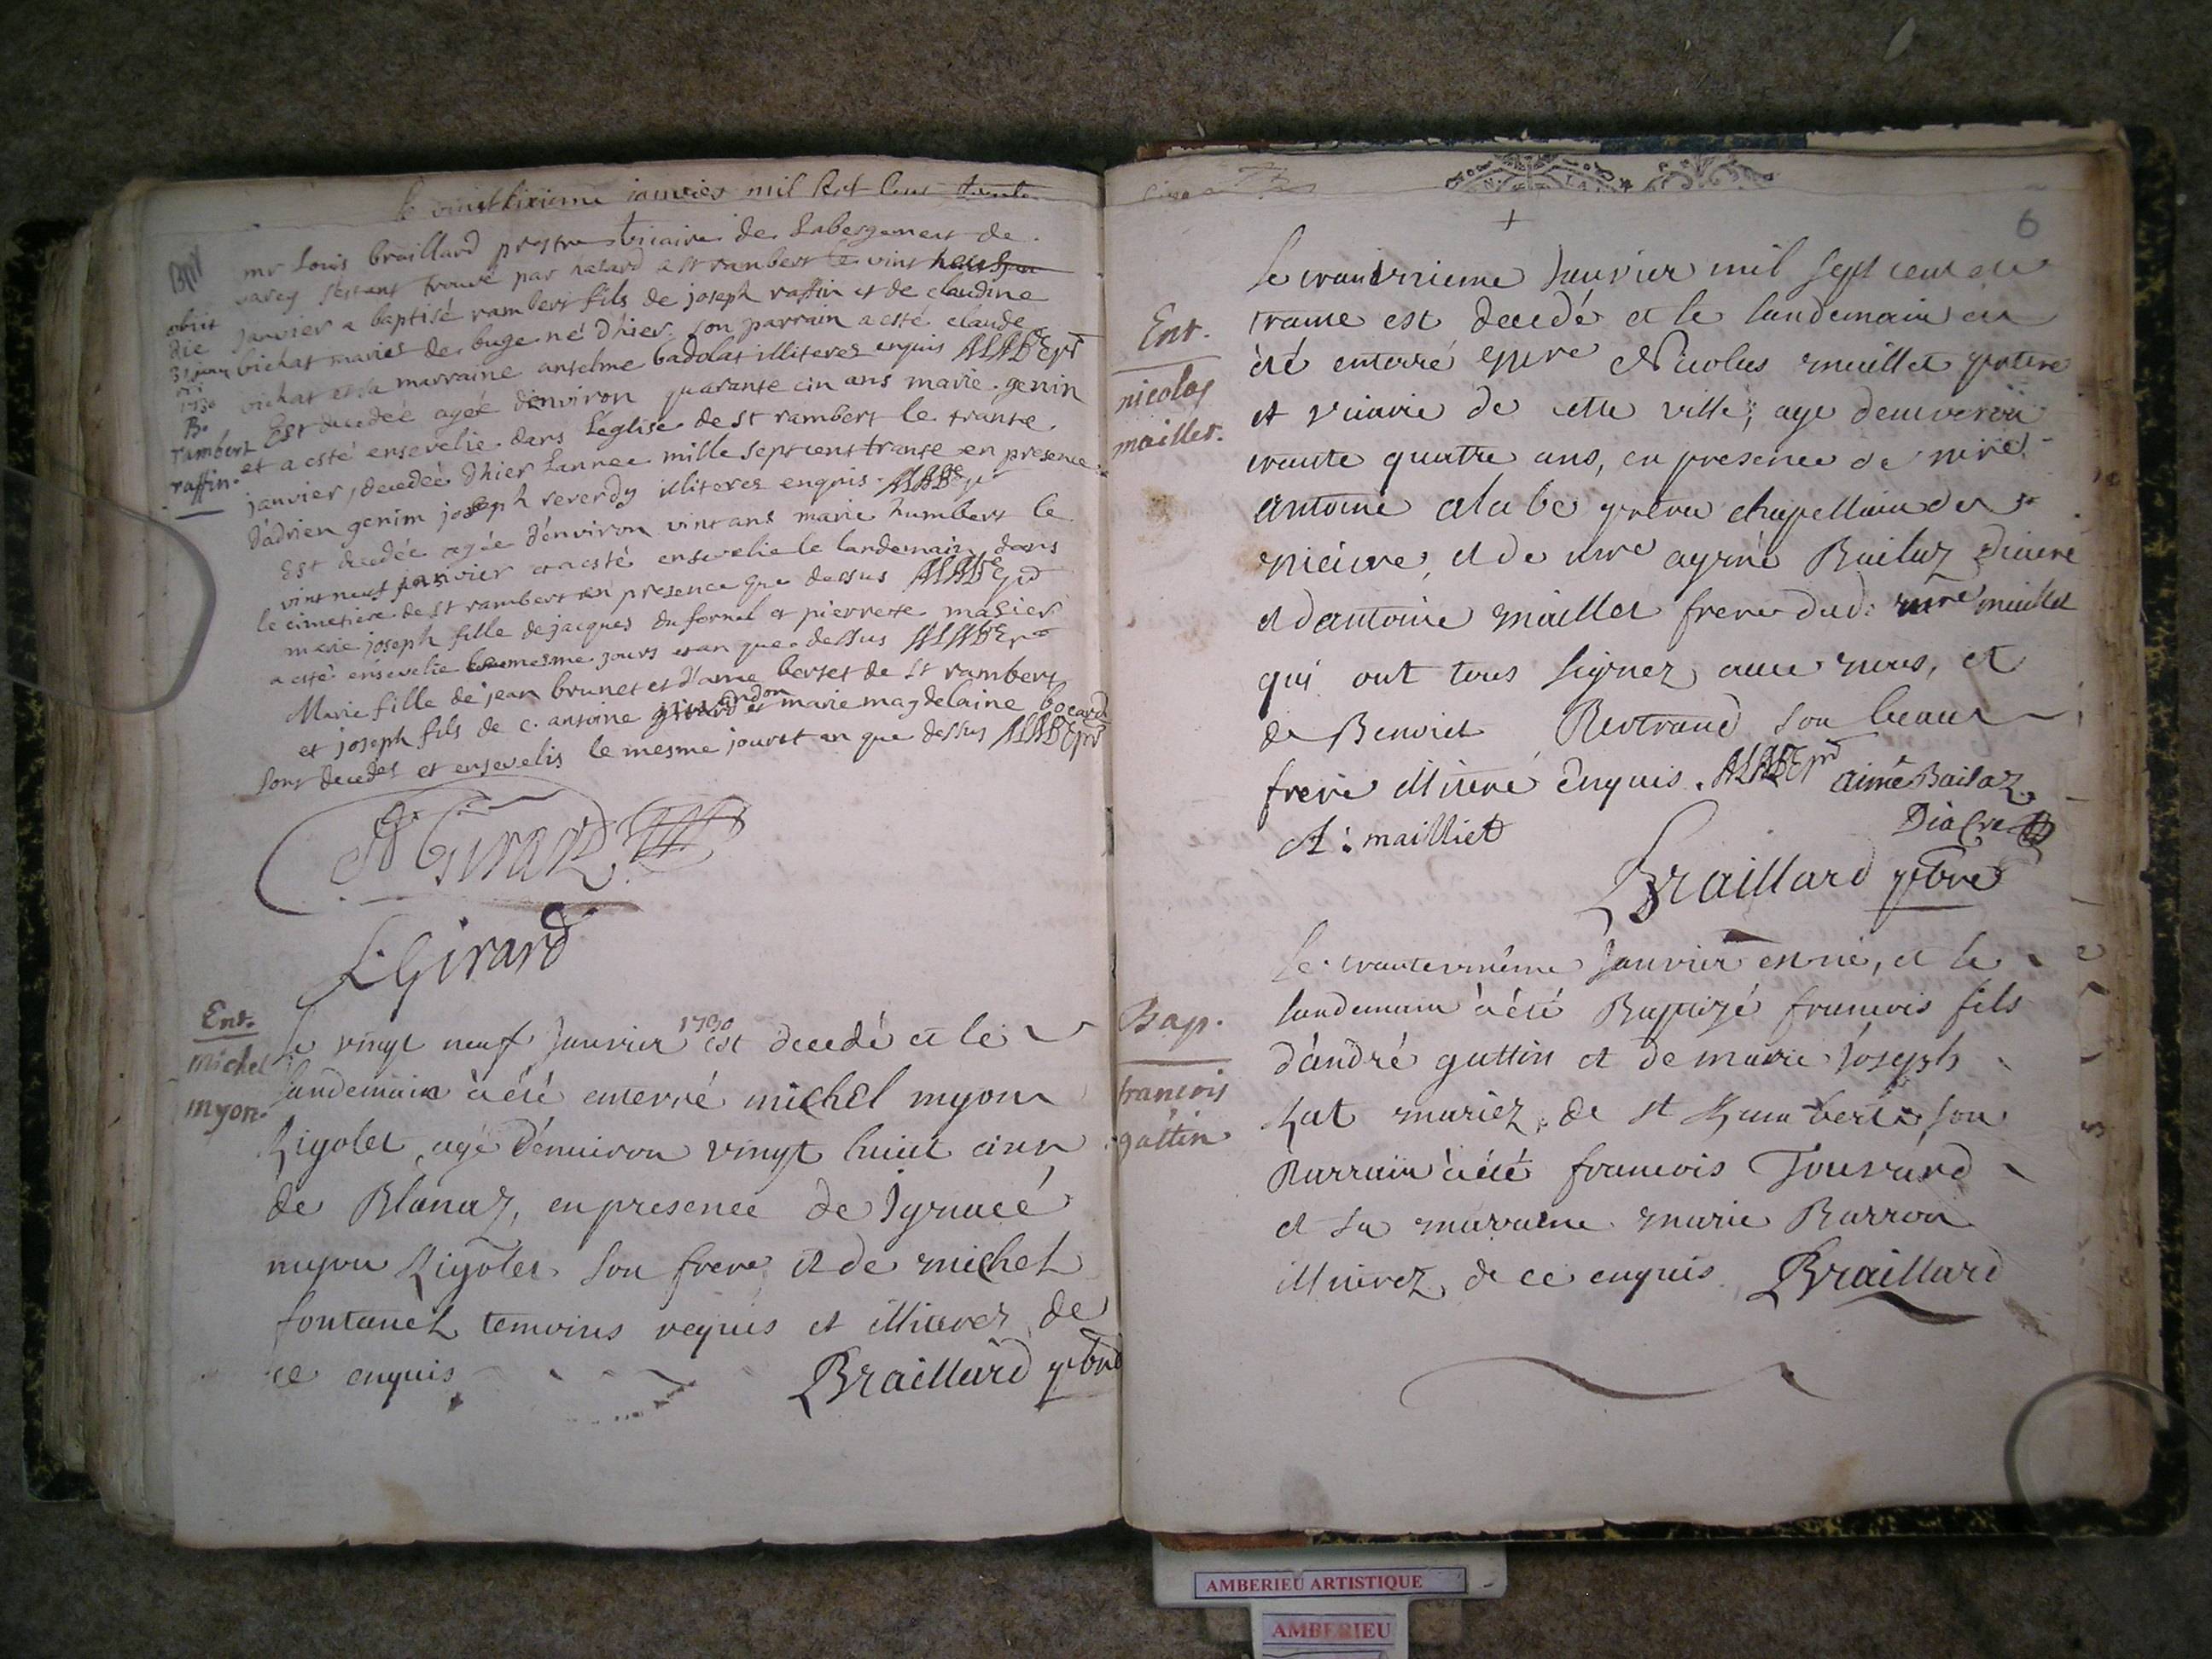 le vinst sixieme janvier mil sept cens trente
Bpt
mr Louis braillard prestre vicaire de Labergement de
varey sestant trouvé par hasard a st rambert le vint
janvier a baptisé rambert fils de joseph raffin et de claudine
bichat mariés de buge né d'hier. son parrain a esté claude
bichat et sa marraine anselme badolat illiteres enquis
obiit
die
31 janv
1730
B.
rambert
raffin.
Est decedée agée d'environ quarante cin ans marie genin
et a esté ensevelie dans L'eglise de st rambert le trante
janvier, decedée d'hier Lannee mille sept cens trante en presence
d'adrien genim joseph reverdy illiteres enquis
Est decedée agée d'environ vint ans marie humbert le
vint neuf janvier et a esté ensevelie le landemain dans
le cimetiere de st rambert en presence que dessus
marie joseph fille de jacques du fornel et pierrete masier
a esté ensevelie le mesme jours et an que dessus
Marie fille de jean brunet et d'anne berset de st rambert
et joseph fils de c. antoine et marie magdelaine bocard
sont decedes et ensevelis le mesme jours et an que dessus
Girard
L Girard
Ent.
michel
myon.
Le vingt neuf Janvier 1730 est decedé et le
landemain à été enterré michel myon
Rigolet agé d'environ vingt huict ans
de Blanaz, en presence de Ignace
myon Rigolet son frere, et de michel
fontanel temoins requis et illiterez de
ce enquis
Braillard pbre
6
Ent.
nicolas
maillet.
Le trantunieme Janvier mil sept cent et
trante est decedé et le landemain a
été enterré mre Nicolas maillet pretre
et vicaire de cette ville, age d'environ
trante quatre ans, en presence de mre
antoine alabe pretre chapellain de st
et de mre aymé Bailaz Diacre
et d'antoine maillet frere dud. mre maillet
qui ont tous signez avec nous, et
de Benoist Bertrand son beau
frere illiteré Enquis. aimé Bailaz
Diacre
A: mailliet
Braillard pbre
Bap.
francois
gattin
Le trantunieme Janvier est né, et le
landemain à été Baptizé francois fils
d'andré gattin et de marie Joseph
Lat mariez de st Rambert, son
Parrain à été francois Jouvard
et sa maraine marie Barron
illiterez de ce enquis Braillard
AMBERIEU ARTISTIQUE
AMBERIEU